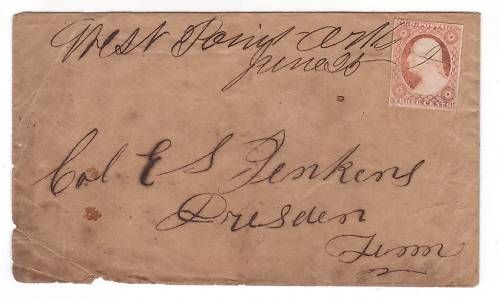 West Point Arks
June 25
U.S. POSTAGE
THREE CENTS
Col E S Jenkens
Dresden
Tenn